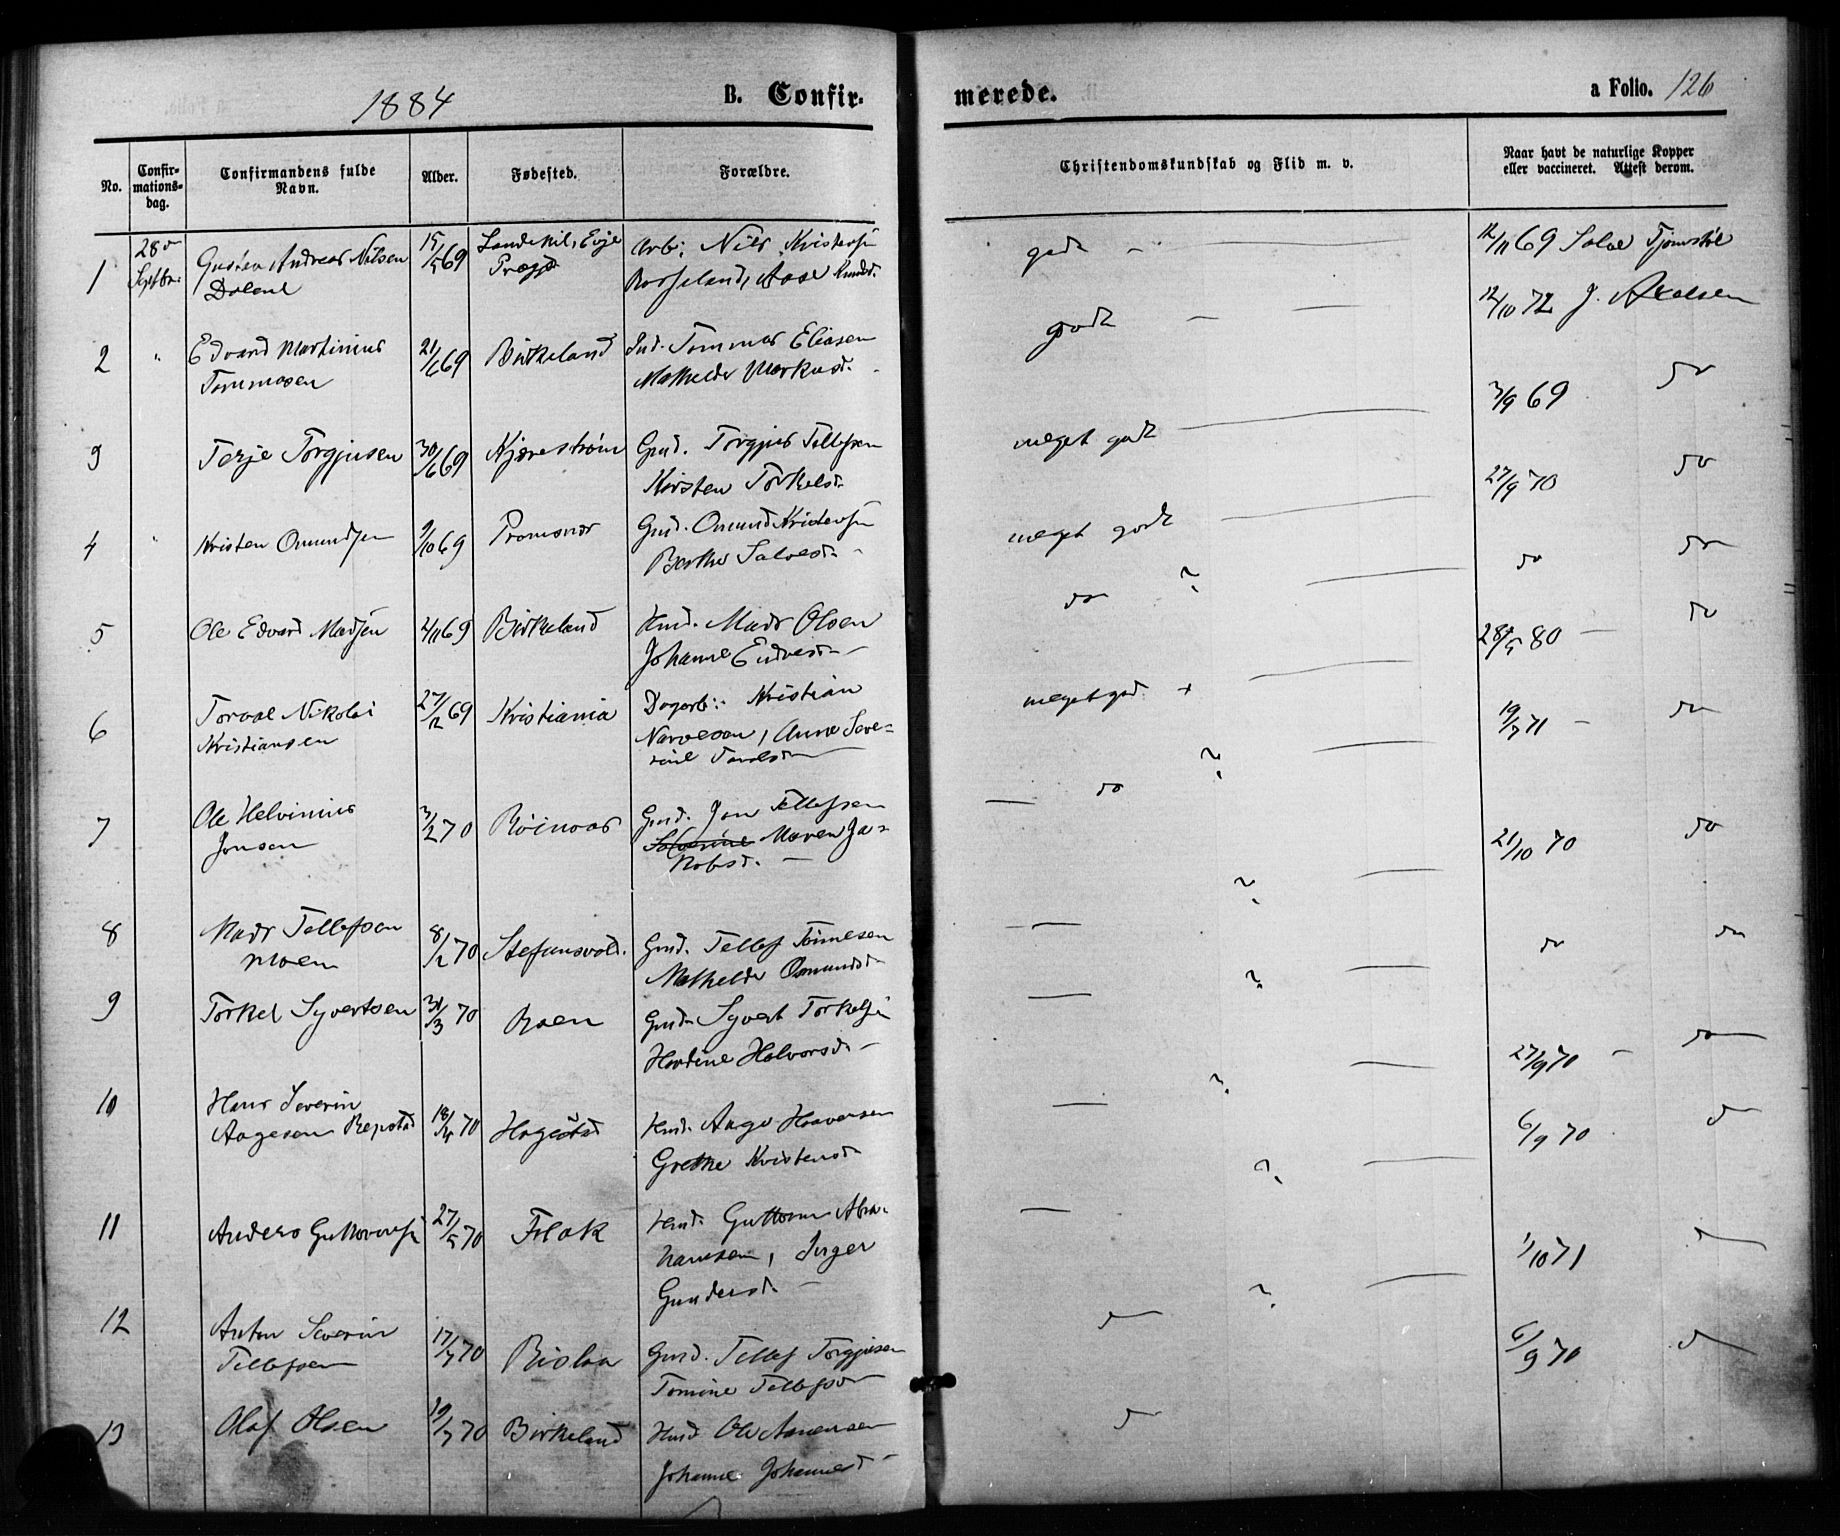 1884
B. Confir-
merede.
a Folio. 126
No.
Confir-
mations-
dag.
Confirmandens fulde
Navn.
Alder.
Fødested.
Forældre.
Christendomskundskab og Flid m. v.
Naar havt de naturlige Kopper
eller vaccineret. Attest derom.
1
28de
Septbr.
Gustav Andreas Nilsen
15/5 69
Evje
Arb: Nils Kristensen
Aase Knudsd.
godt
12/11 69
2
"
Edvard Martinius
Tommasen
21/6 69
Birkeland
Ind. Tommas Eliasen
Mathilde Markusd.
godt
12/10 72 J. Axelsen
3
Terje Torgjusen
30/6 69
Kjærestrøm
Gmd. Torgjus Tellefsen
Kirsten Torkelsd.
meget godt
3/9 69 do
4
"
Kristen Omundsen
9/10 69
Gmd. Omund Kristensen
Berthe Salvesd.
meget godt
27/9 70 do
5
Ole Edvard Madsen
2/11 69
Birkeland
Hmd. Mads Olsen
Johanne Endresd.
do ?
do do
6
Torval Nikolai
Kristiansen
27/12 69
Kristiania
Dagarb: Kristian
Narvesen, Anne Seve-
rine
meget godt +
28/5 80 do
7
Ole Helvinius
Jonsen
3/2 70
Gmd. Jon Tellefsen
Maren Ja-
kobsd.
do ?
19/7 71 do
8
Mads Tellefsen
Moen
8/2 70
Stefansvold.
Gmd. Tellef Tønnesen
Mathilde Osmundsd.
?
21/10 70 do
9
Torkel Syvertsen
31/3 70
Boen
Gmd. Syvert Torkelsen
Halvorsd.
?
do do
10
Hans Severin
Aagesen Repstad
18/4 70
Hagestad
Hmd. Aage Haavorsen
Grethe Kristensd.
?
27/9 70 do
11
Anders Guttormsen
27/5 70
Flak
Hmd. Guttorm Abra-
hamsen, Inger
Gundersd.
?
6/9 70 do
12
Anton Severin
Tellefsen
17/7 70
Gmd. Tellef Torgjusen
Tomine Tellefsd.
do ?
1/10 71 do
13
Olaf Olsen
19/7 70
Birkeland
Hmd Ole Aanensen
Johanne Johannesd.
do
6/9 70 do